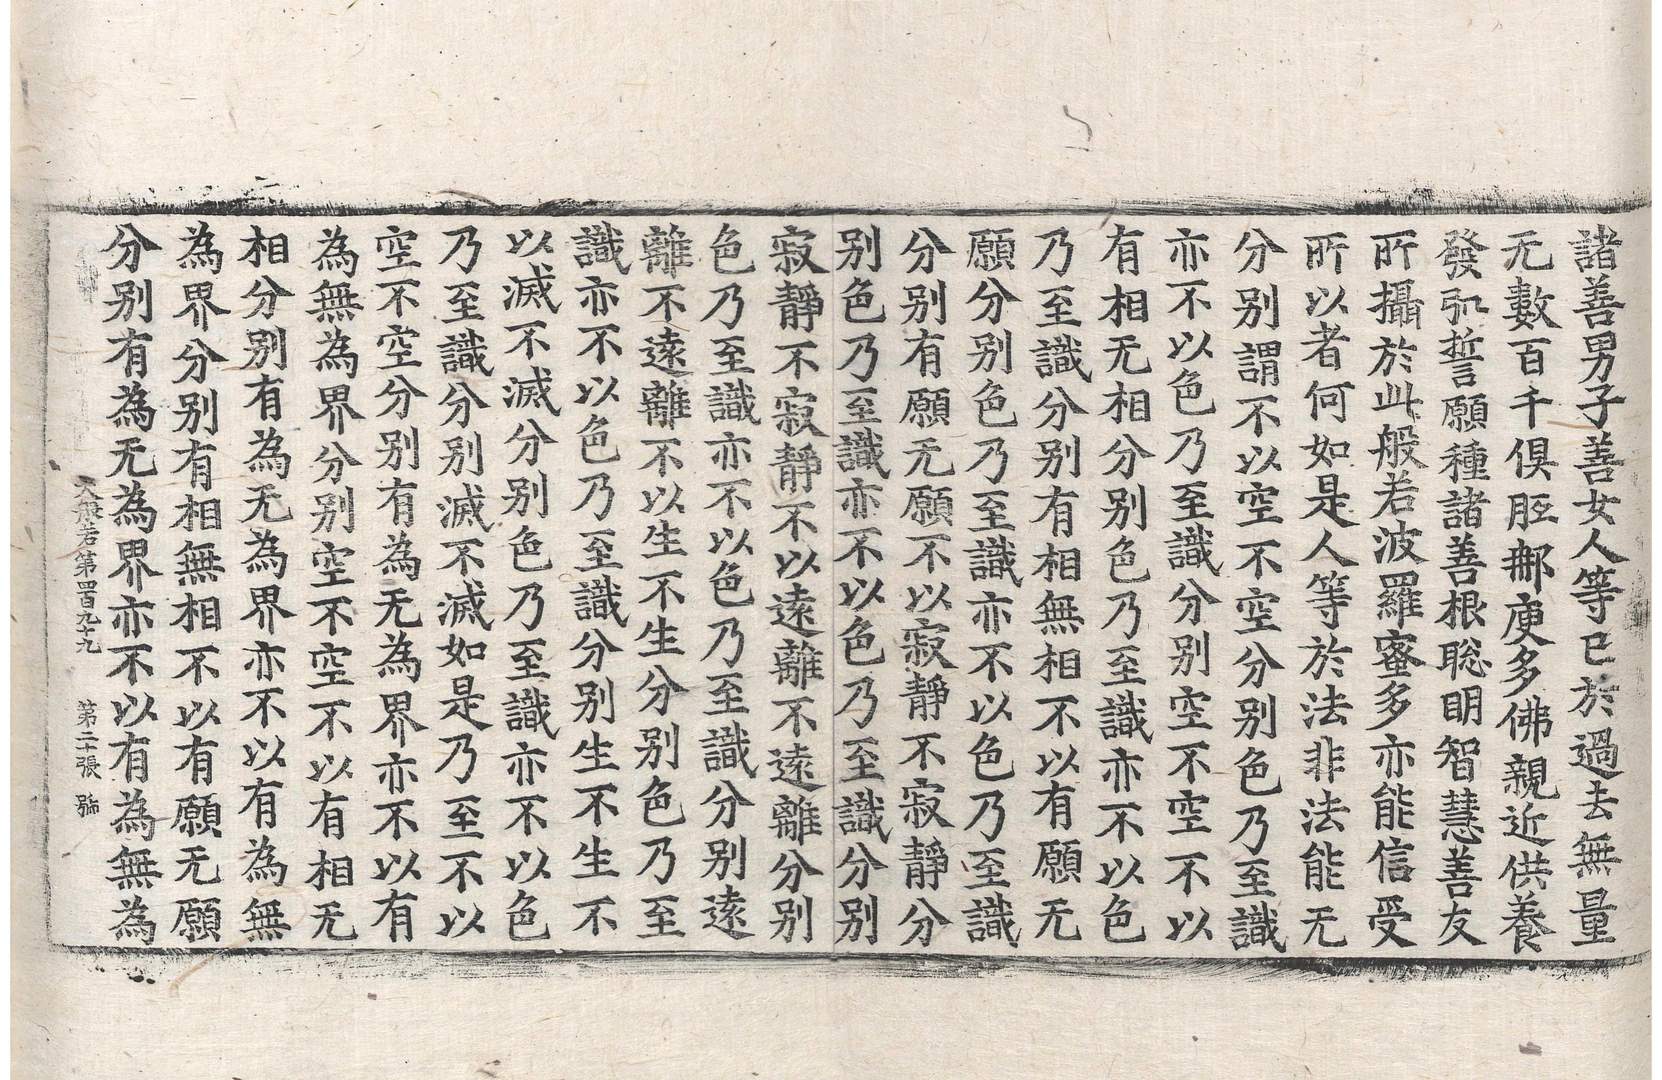 諸善男子善女人等已於過去無量
无數百千俱胝那庾多佛親近供養
發弘誓願種諸善根聦明智慧善友
所攝於此般若波羅蜜多亦能信受
所以者何如是人等於法非法能无
分别謂不以空不空分别色乃至識
亦不以色乃至識分别空不空不以
有相无相分别色乃至識亦不以色
乃至識分别有相無相不以有願无
願分别色乃至識亦不以色乃至識
分别有願无願不以寂靜不寂靜分
别色乃至識亦不以色乃至識分别
寂靜不寂靜不以遠離不遠離分别
色乃至識亦不以色乃至識分别遠
離不遠離不以生不生分别色乃至
識亦不以色乃至識分别生不生不
以滅不滅分别色乃至識亦不以色
乃至識分别滅不滅如是乃至不以
空不空分别有為无為界亦不以有
為無為界分别空不空不以有相无
相分别有為无為界亦不以有為無
為界分别有相無相不以有願无願
分别有為无為界亦不以有為無為
大般若第四百九十九 第二十張 號